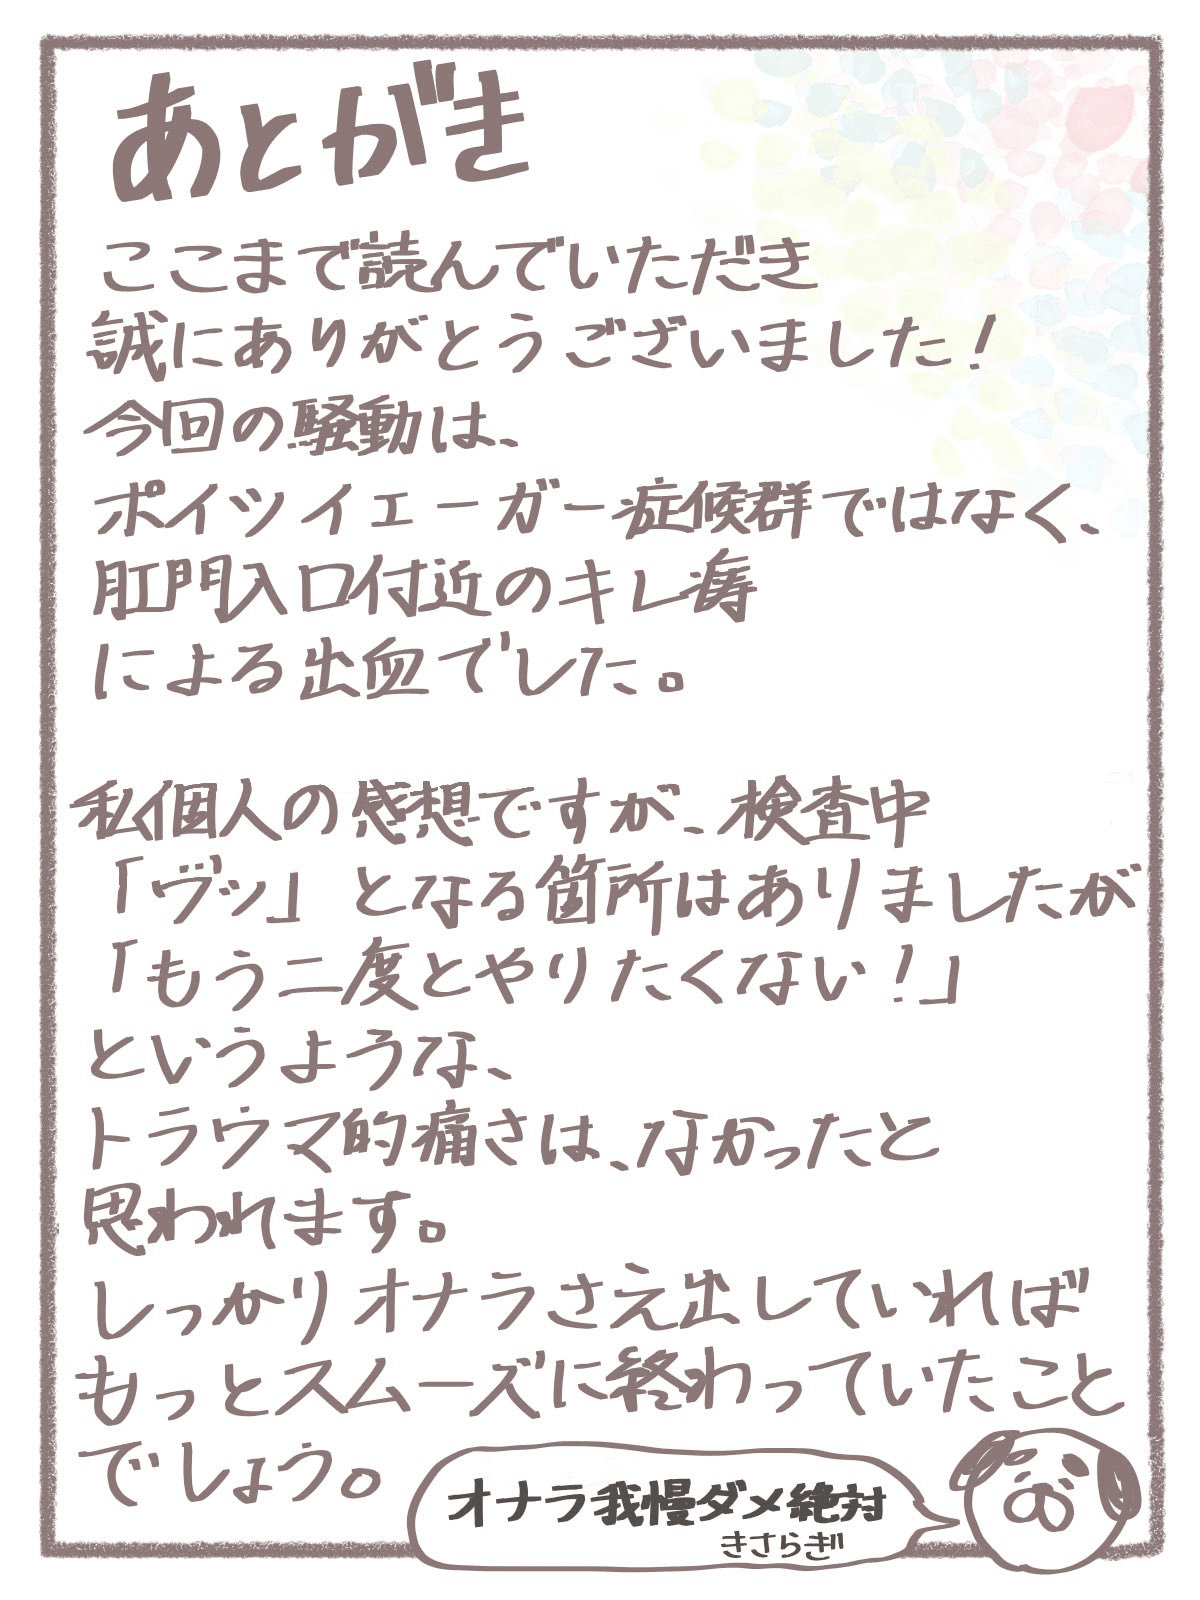 あとがき
ここまで読んでいただき
誠にありがとうございました!
今回の騒動は、
ポイツイェーガー症候群ではなく、
肛門入口付近のキレ痔
による出血でした。
私個人の感想ですが、検査中
「ヴッ」となる箇所はありましたが
「もう二度とやりたくない!」
というような、
トラウマ的痛さは、なかったと
思われます。
しっかりオナラさえ出していれば
もっとスムーズに終わっていたこと
でしょう。
オナラ我慢ダメ絶対
きさらぎ